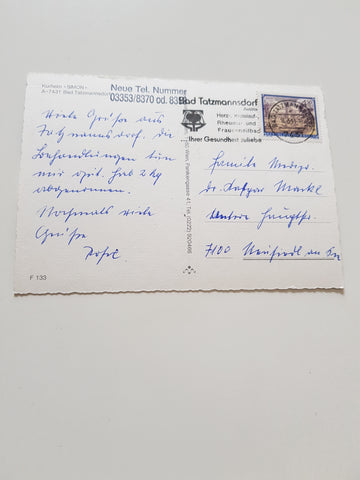 Kurheim »SIMON«
A-7431 Bad Tatzmannsdorf
Neue Tel. Nummer
03353/8370 od. 835
Bad Tatzmannsdorf
Herz-, Kreislauf-
Rheuma- und
Frauenheilbad
Ihrer Gesundheit zuliebe
Viele Grüße aus
Tatzmannsdorf. die
Behandlungen tun
mir gut. hab 2 kg
abgenommen.
Nochmals viele
Grüße
F 133
Familie
Markl
Untere Hauptstr.
7100 Neusiedl am See